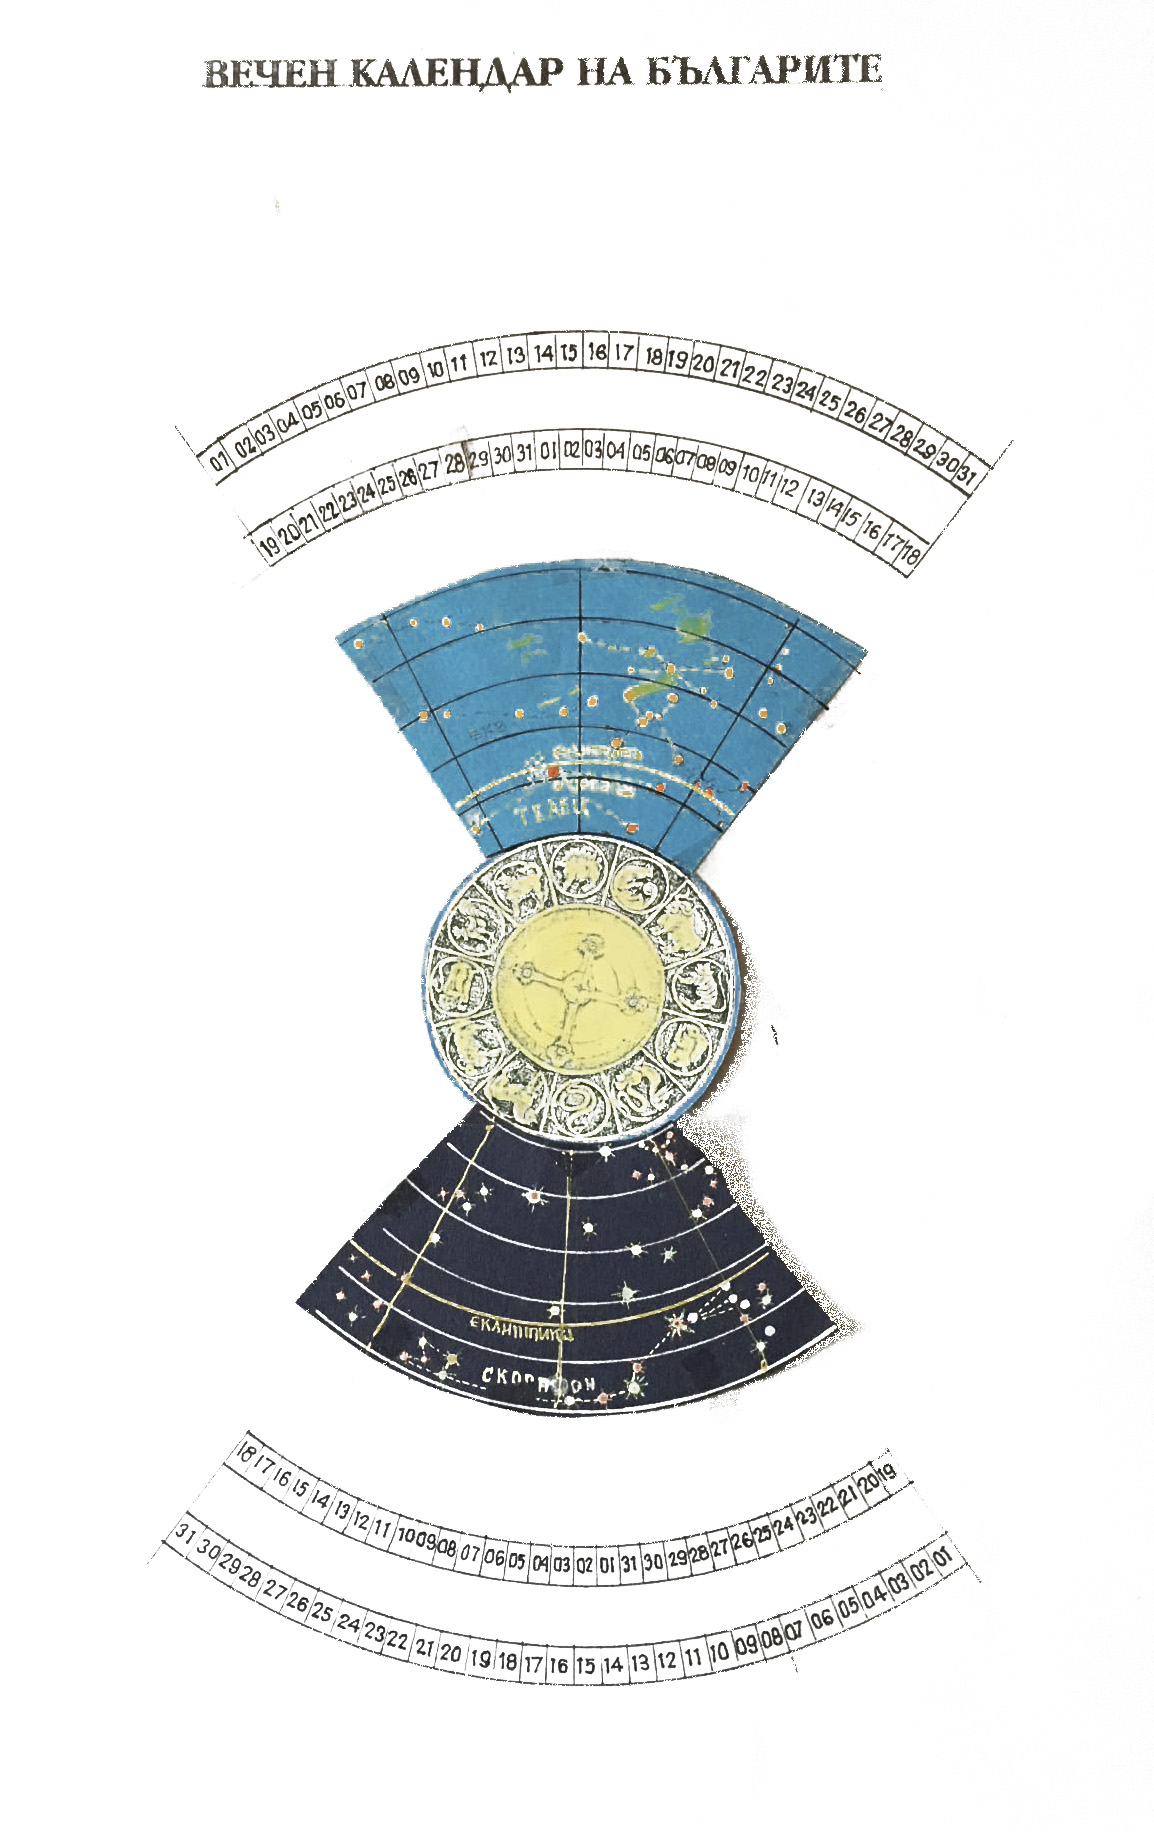 ВЕЧЕН КАЛЕНДАР НА БЪЛГАРИТЕ
01 02 03 04 05 06 07 08 09 10 11 12 13 14 15 16 17 18 19 20 21 22 23 24 25 26 27 28 29 30 31
19 20 21 22 23 24 25 26 27 28 29 30 31 01 02 03 04 05 06 07 08 09 10 11 12 13 14 15 16 17 18
ТЕЛЕЦ
ЕКЛИПТИКА
СКОРПИОН
18 17 16 15 14 13 12 11 10 09 08 07 06 05 04 03 02 01 31 30 29 28 27 26 25 24 23 22 21 20 19
31 30 29 28 27 26 25 24 23 22 21 20 19 18 17 16 15 14 13 12 11 10 09 08 07 06 05 04 03 02 01